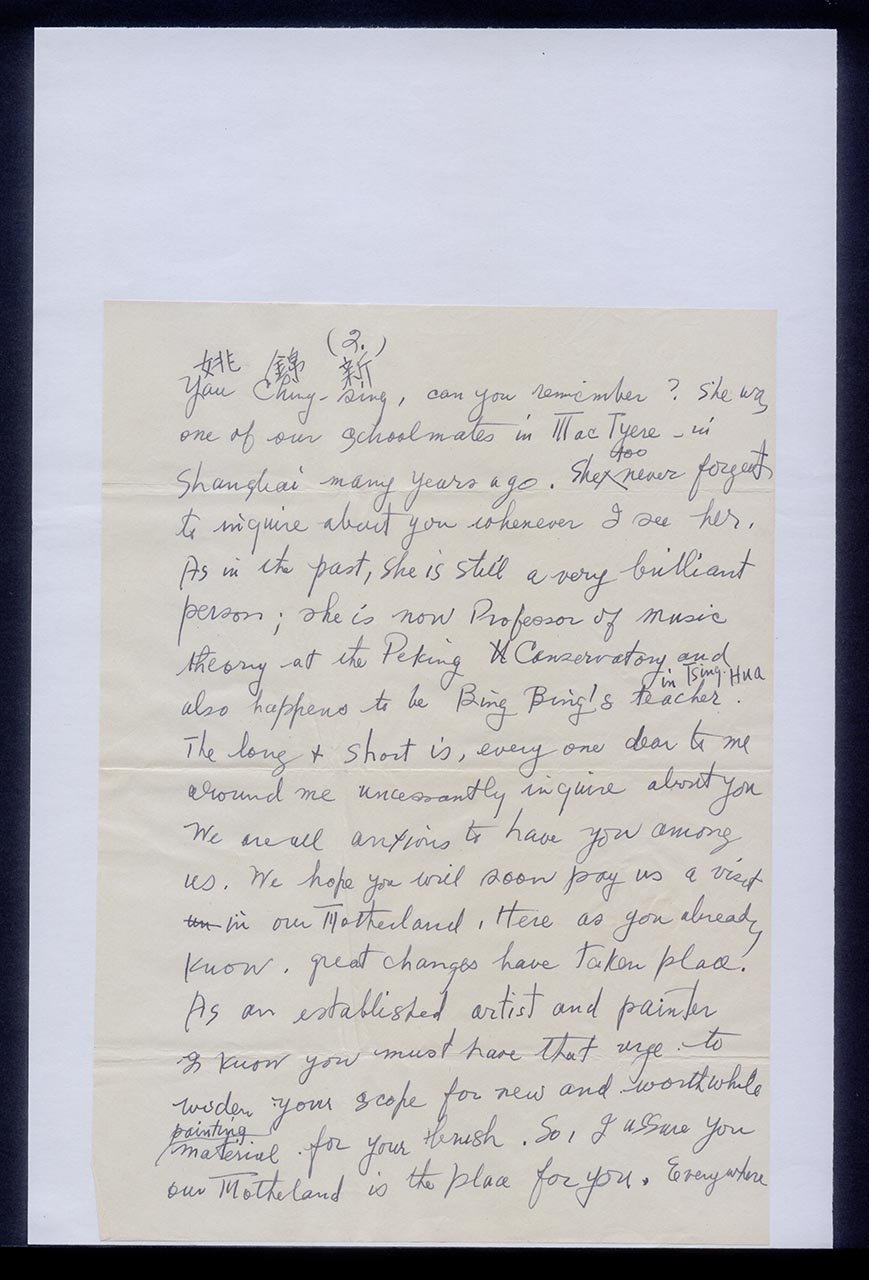 (2.)
姚 錦 新
Yau Ching-sing, can you remember? She was
one of our schoolmates in MacTyere - in
Shanghai many years ago. She too never forgets
to inquire about you whenever I see her.
As in the past, she is still a very brilliant
person; she is now Professor of music
theory at the Peking Conservatory and
also happens to be Bing Bing's teacher in Tsing-Hua.
The long & short is, every one dear to me
around me uncessantly inquire about you
We are all anxious to have you among
us. We hope you will soon pay us a visit
in our Motherland. Here as you already
know, great changes have taken place.
As an established artist and painter
I know you must have that urge to
widen your scope for new and worthwhile
painting material for your brush. So, I assure you
our Motheland is the place for you. Everywhere